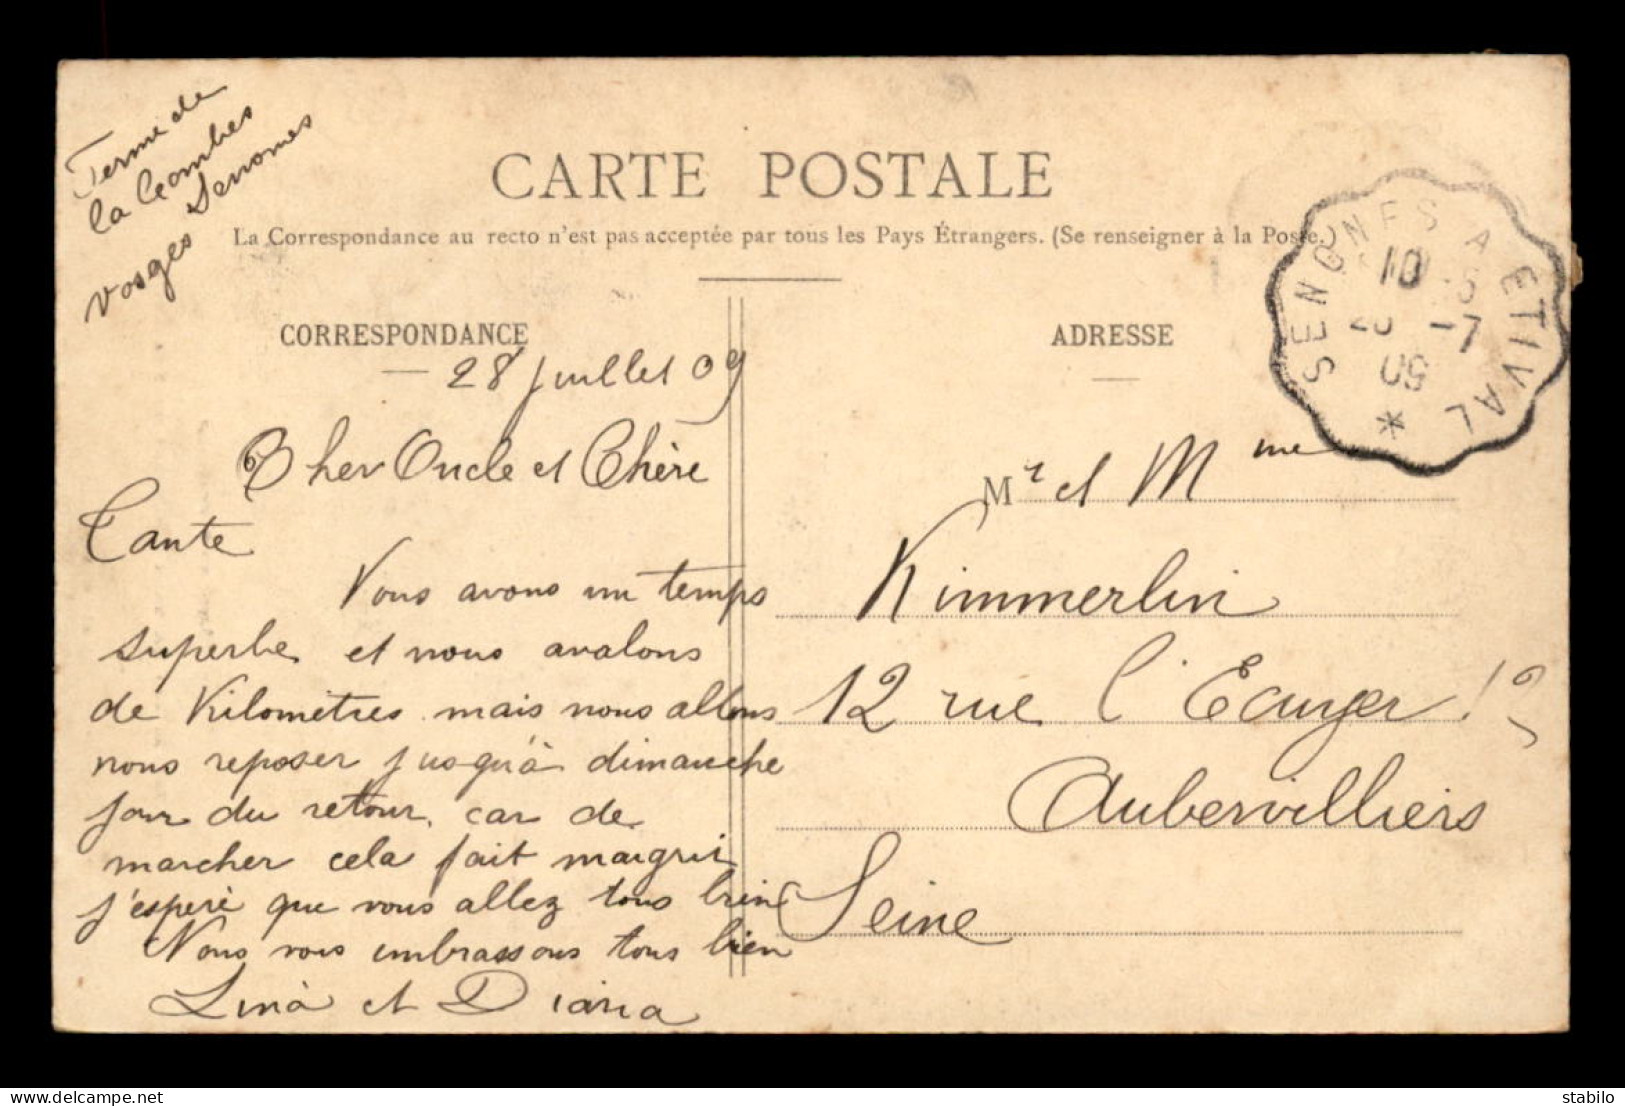 Ferme de
la Combes
Vosges Senones
CARTE POSTALE
La Correspondance au recto n'est pas acceptée par tous les Pays Étrangers. (Se renseigner à la Poste.)
CORRESPONDANCE
28 juillet 09
Cher Oncle et Chère
Tante
Nous avons un temps
superbe et nous avalons
de Kilomètres mais nous allons
nous reposer jusqu'à dimanche
jour du retour. car de
marcher cela fait maigrir
j'espère que vous allez tous bien
Nous vous embrassons tous bien
Lina et Diana
ADRESSE
Mr et Mme
Kimmerlin
12 rue l'Ecuyer !?
Aubervilliers
Seine
SENONES A ETIVAL
10
-7
09
*
delcampe.net
satbilo